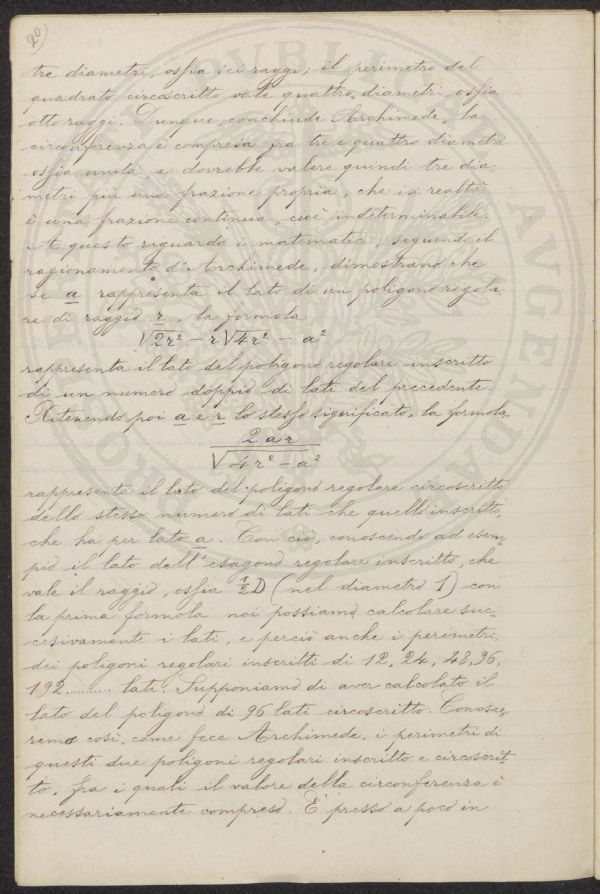 20)
tre diametri, ossia sei raggi; il perimetro del
quadrato circoscritto vale quattro diametri, ossia
otto raggi. Dunque, conchiude Archimede, la
circonferenza è compresa fra tre e quattro diametri
ossia unità, e dovrebbe valere quindi tre dia
metri più una frazione propria, che in realtà
è una frazione continua, cioè indeterminabile.
A questo riguardo i matematici, seguendo il
ragionamento d'Archimede, dimostrano che
se a rappresenta il lato di un poligono regola
re di raggio r, la formola
√2r² – r√4r² – a²
rappresenta il lato del poligono regolare inscritto
di un numero doppio di lati del precedente.
Ritenendo poi a e r lo stesso significato, la formola
2 a r
√4r² – a²
rappresenta il lato del poligono regolare circoscritto
dello stesso numero di lati che quello inscritto,
che ha per lato a. Con ciò, conoscendo ad esem
pio il lato dell'esagono regolare inscritto, che
vale il raggio, ossia ½D (nel diametro 1) con
la prima formola noi possiamo calcolare suc=
cesivamente i lati, e perciò anche i perimetri,
dei poligoni regolari inscritti di 12, 24, 48, 96,
192.......... lati. Supponiamo di aver calcolato il
lato del poligono di 96 lati circoscritto. Conosce
remo così, come fece Archimede, i perimetri di
questi due poligoni regolari inscritto e circoscrit
to, fra i quali il valore della circonferenza è
necessariamente compreso. E' presso a poco in
PVBLI
AVGENDAE